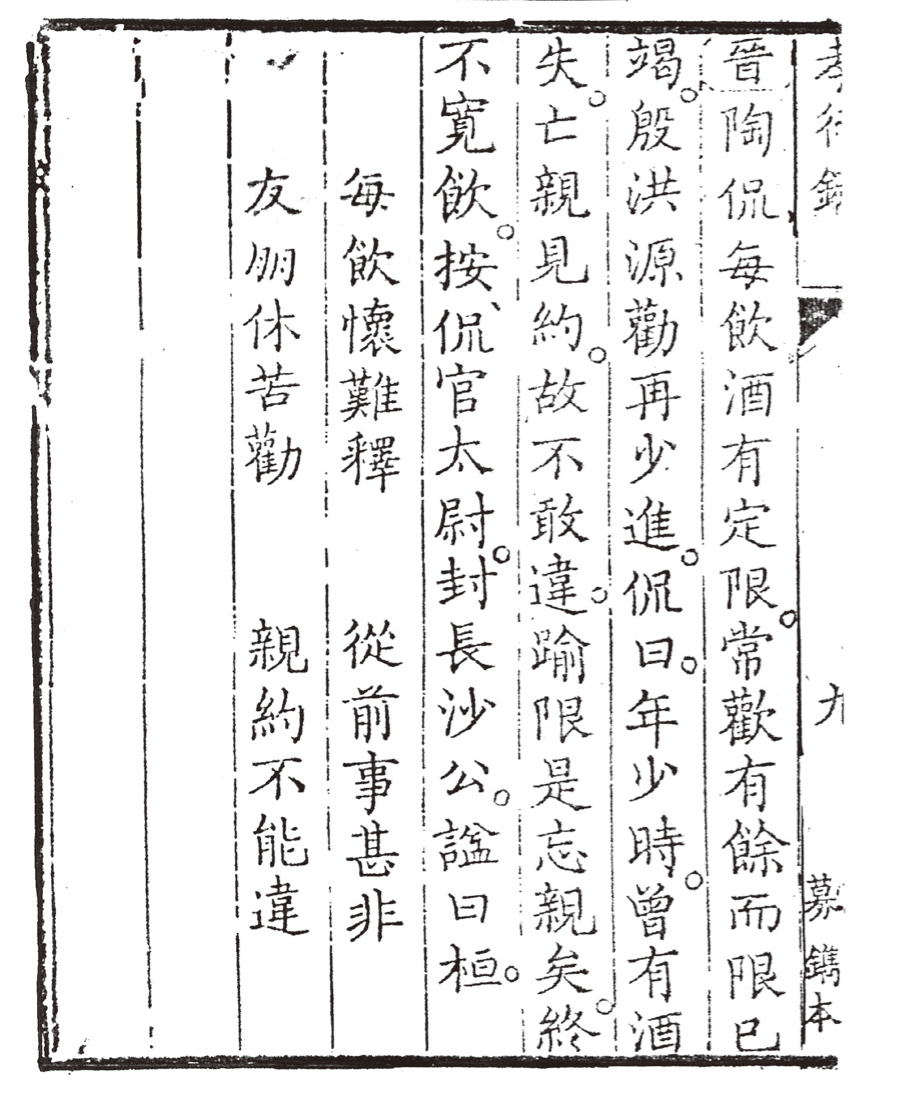 晉陶侃每飲酒有定限。常歡有餘而限已
竭。殷洪源勸再少進。侃曰。年少時。曾有酒
失。亡親見約。故不敢違。踰限是忘親矣。終
不寬飲。按侃官太尉。封長沙公。諡曰桓。
每飲懷難釋　從前事甚非
友朋休苦勸　親約不能違
九
慕鐫本